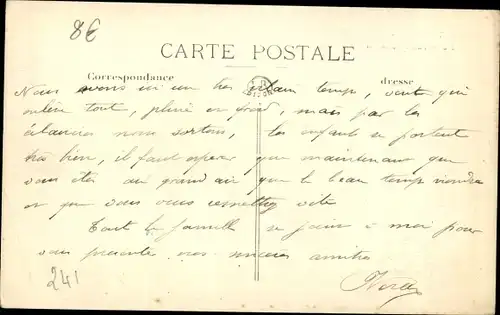 8€
CARTE POSTALE
Correspondance
dresse
Nous avons ici un très vilain temps, vent qui
enlève tout, pluie et froid, mais par les
éclaircies nous sortons, les enfants se portent
très bien, il faut espérer que maintenant que
vous êtes au grand air que le beau temps viendra
et que vous vous remettrez vite
Toute la famille se joint à moi pour
vous présenter nos sincères amitiés
241